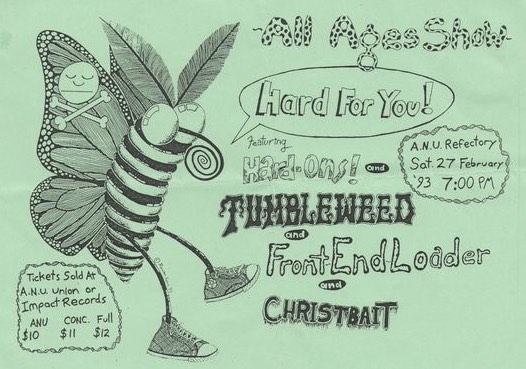 All Ages Show
Hard For You!
Featuring
Hard-Ons! and
TUMBLEWEED
and
FrontEndLoader
and
CHRISTBAIT
A.N.U. Refectory
Sat. 27 February
'93 7:00 PM
Tickets Sold At
A.N.U. Union or
Impact Records
ANU CONC. Full
$10 $11 $12